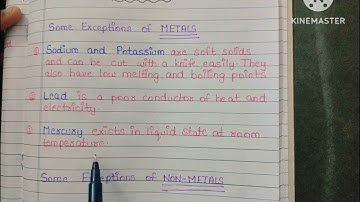 KINEMASTER
Some Exceptions of METALS
Sodium and Potassium are soft solids
and can be cut with a knife easily. They
also have low melting and boiling points.
Lead is a poor conductor of heat and
electricity.
Mercury exists in liquid state at room
temperature.
Some Exceptions of NON-METALS